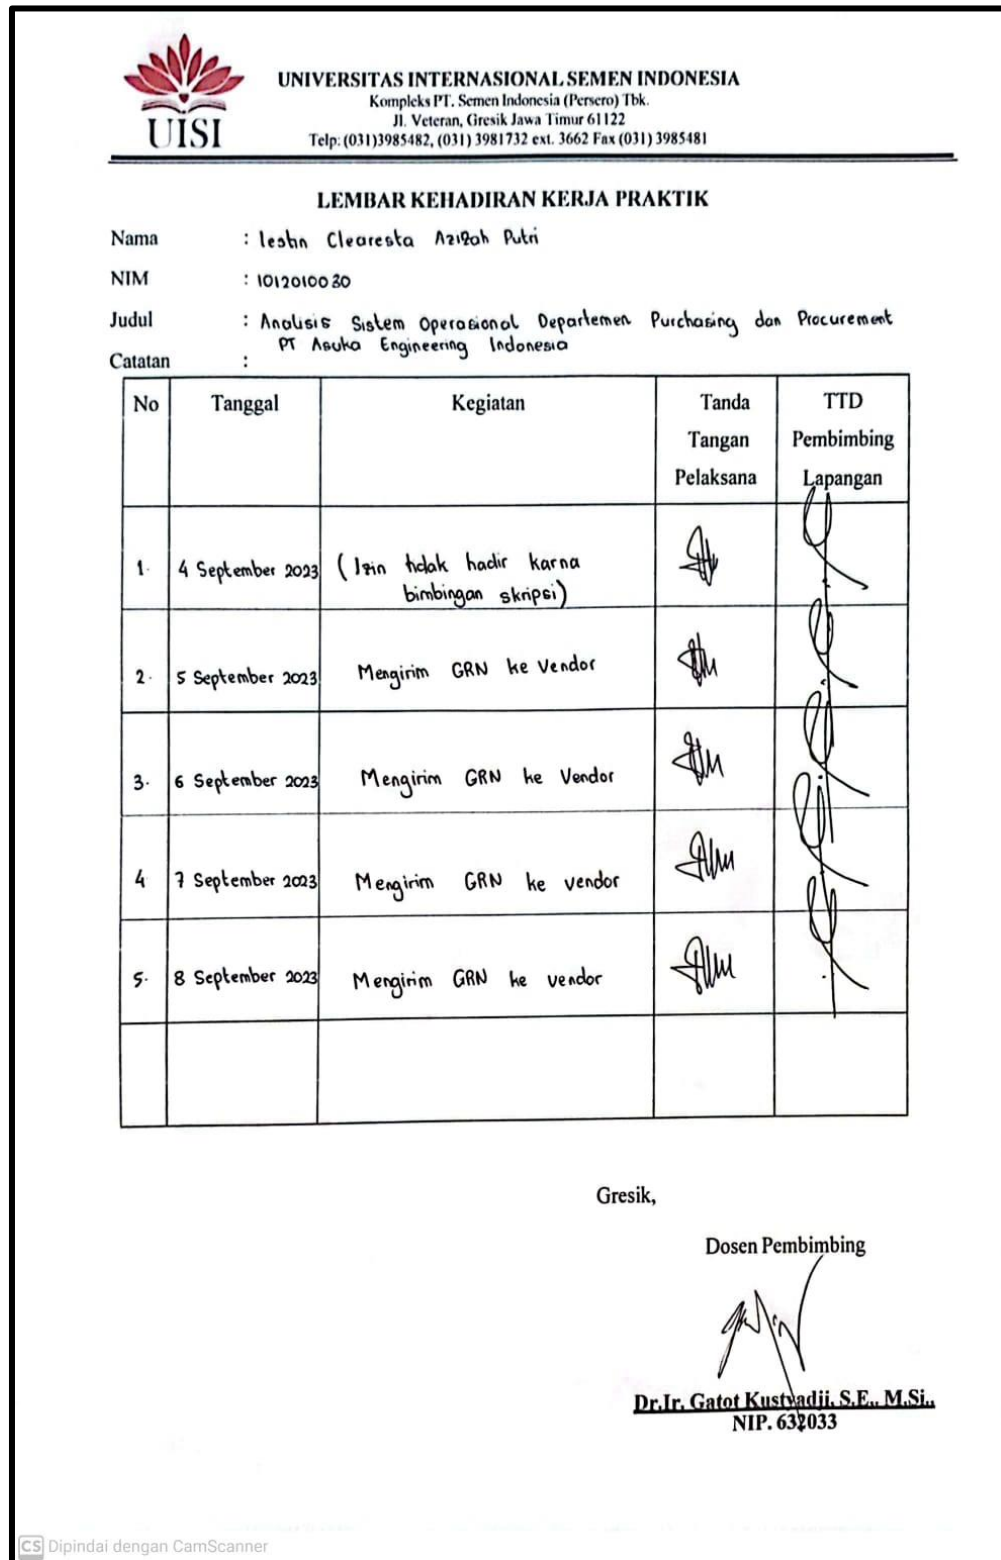 UISI
UNIVERSITAS INTERNASIONAL SEMEN INDONESIA
Kompleks PT. Semen Indonesia (Persero) Tbk.
Jl. Veteran, Gresik Jawa Timur 61122
Telp: (031)3985482, (031) 3981732 ext. 3662 Fax (031) 3985481
LEMBAR KEHADIRAN KERJA PRAKTIK
Nama : Clearesta Azizah Putri
NIM : 1012010030
Judul : Analisis Sistem Operasional Departemen Purchasing dan Procurement
PT Asuka Engineering Indonesia
Catatan :
No Tanggal Kegiatan Tanda Tangan Pelaksana TTD Pembimbing Lapangan
1. 4 September 2023 (Izin tidak hadir karna
bimbingan skripsi)
2. 5 September 2023 Mengirim GRN ke Vendor
3. 6 September 2023 Mengirim GRN ke Vendor
4 7 September 2023 Mengirim GRN ke vendor
5. 8 September 2023 Mengirim GRN ke vendor
Gresik,
Dosen Pembimbing
Dr.Ir. Gatot Kustyadji, S.E., M.Si.,
NIP. 632033
CS Dipindai dengan CamScanner